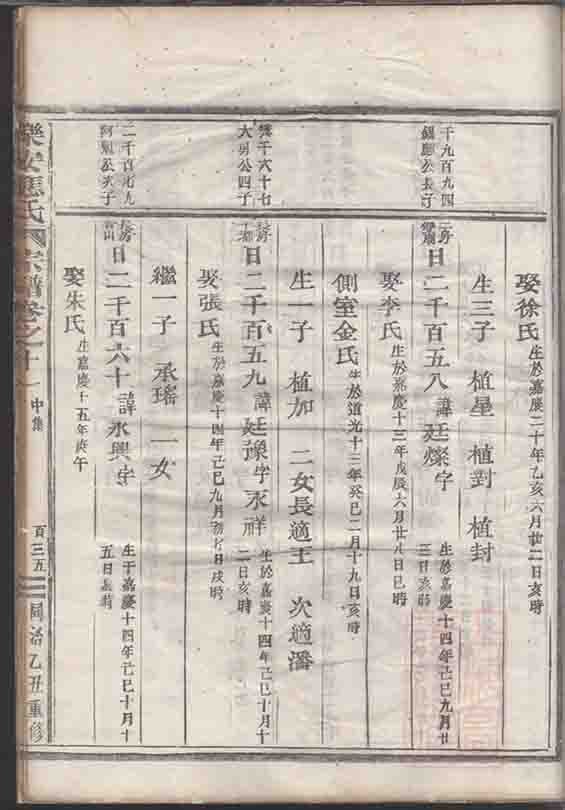 娶徐氏 生於嘉慶二十年乙亥六月廿二日亥時
生三子 植星 植對 植封
千九百九四
公長子
二房
日二千百五八 諱廷燦字 生於嘉慶十四年己巳九月廿
三日亥時
娶李氏 生於嘉慶十三年戊辰六月廿八日巳時
側室金氏 生於道光十三年癸巳二月十九日亥時
生一子 植加 二女長適王 次適潘
千六十七
大男公四子
長房
日二千百五九 諱廷豫字永祥 生於嘉慶十四年己巳十月十
二日亥時
娶張氏 生於嘉慶十四年己巳九月初 日戌時
繼一子 承瑤 一女
二千百七九
阿 公次子
長房
日二千百六十 諱永興字 生于嘉慶十四年己巳十月十
五日 時
娶朱氏 生嘉慶十五年庚午
樂安應氏宗譜卷之十一 中集 百三五 同治乙丑重修